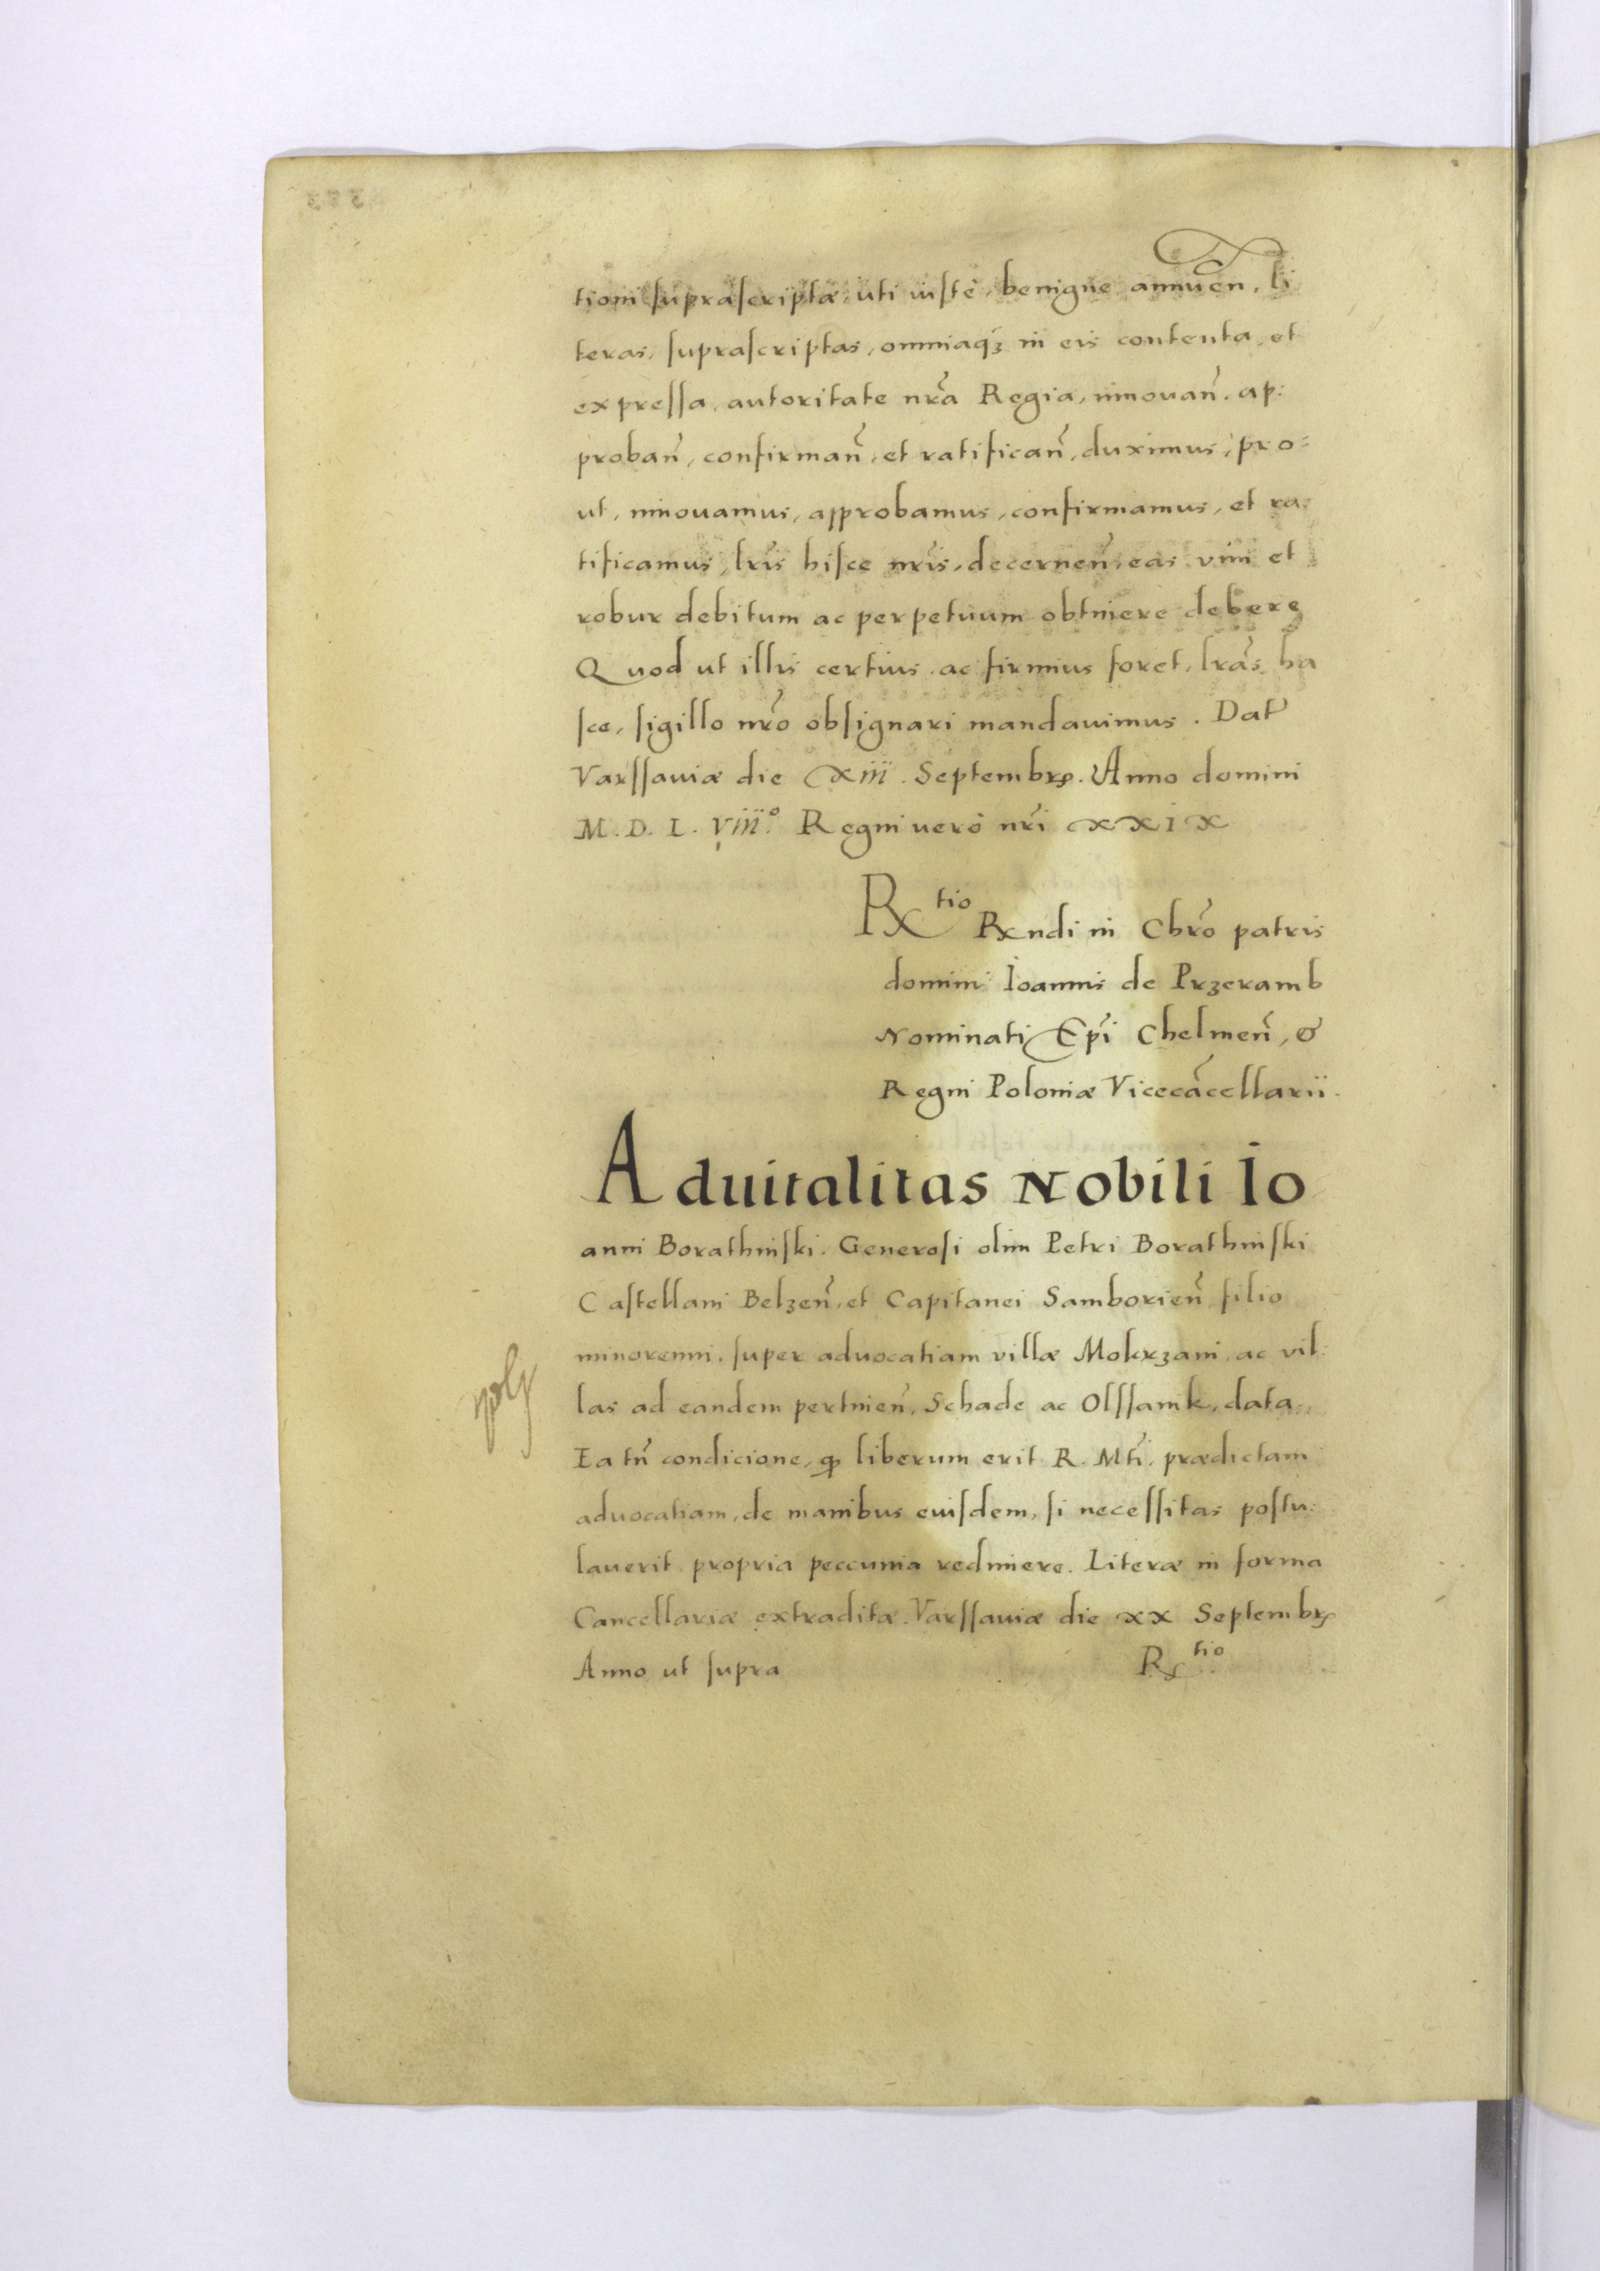 tioni suprascriptæ, uti iuste, benigne annuen̄, li
teras, suprascriptas, omniaqʒ in eis contenta, et
expressa, autoritate nr̄a Regia, innouan̄. ap:
proban̄, confirman̄, et ratifican̄, duximus, pro=
ut, innouamus, approbamus, confirmamus, et ra:
tificamus, lr̄is hisce nr̄is, decernen̄, eas vim et
robur debitum ac perpetuum obtinere debere
Quod ut illis certius, ac firmius foret, lr̄as ha
sce, sigillo nr̄o obsignari mandauimus. Dat̄
Varssauiæ die xiii. Septembrꝭ. Anno domini
M. D. L. viii.º Regni uerò nr̄i xxix
Rtio Rndi in Chr̄o patris
domini Ioannis de Przeramb
Nominati Ep̄i Chelmen̄, &
Regni Poloniæ Vicecācellarii.
Aduitalitas Nobili Io
anni Borathinski. Generosi olim Petri Borathinski
Castellani Belzen̄, et Capitanei Samborien̄ filio
minorenni, super aduocatiam villæ Mokrzani, ac vil:
las ad eandem pertinen̄, Schade ac Olssanik, data.
Ea tn̄ condicione, ꝙ liberum erit R. Mti̅. prædictam
aduocatiam, de manibus eiusdem, si necessitas postu:
lauerit propria peccunia redimere. Literæ in forma
Cancellariæ extraditæ. Varssauiæ die xx Septembrꝭ
Anno ut supra Rtio